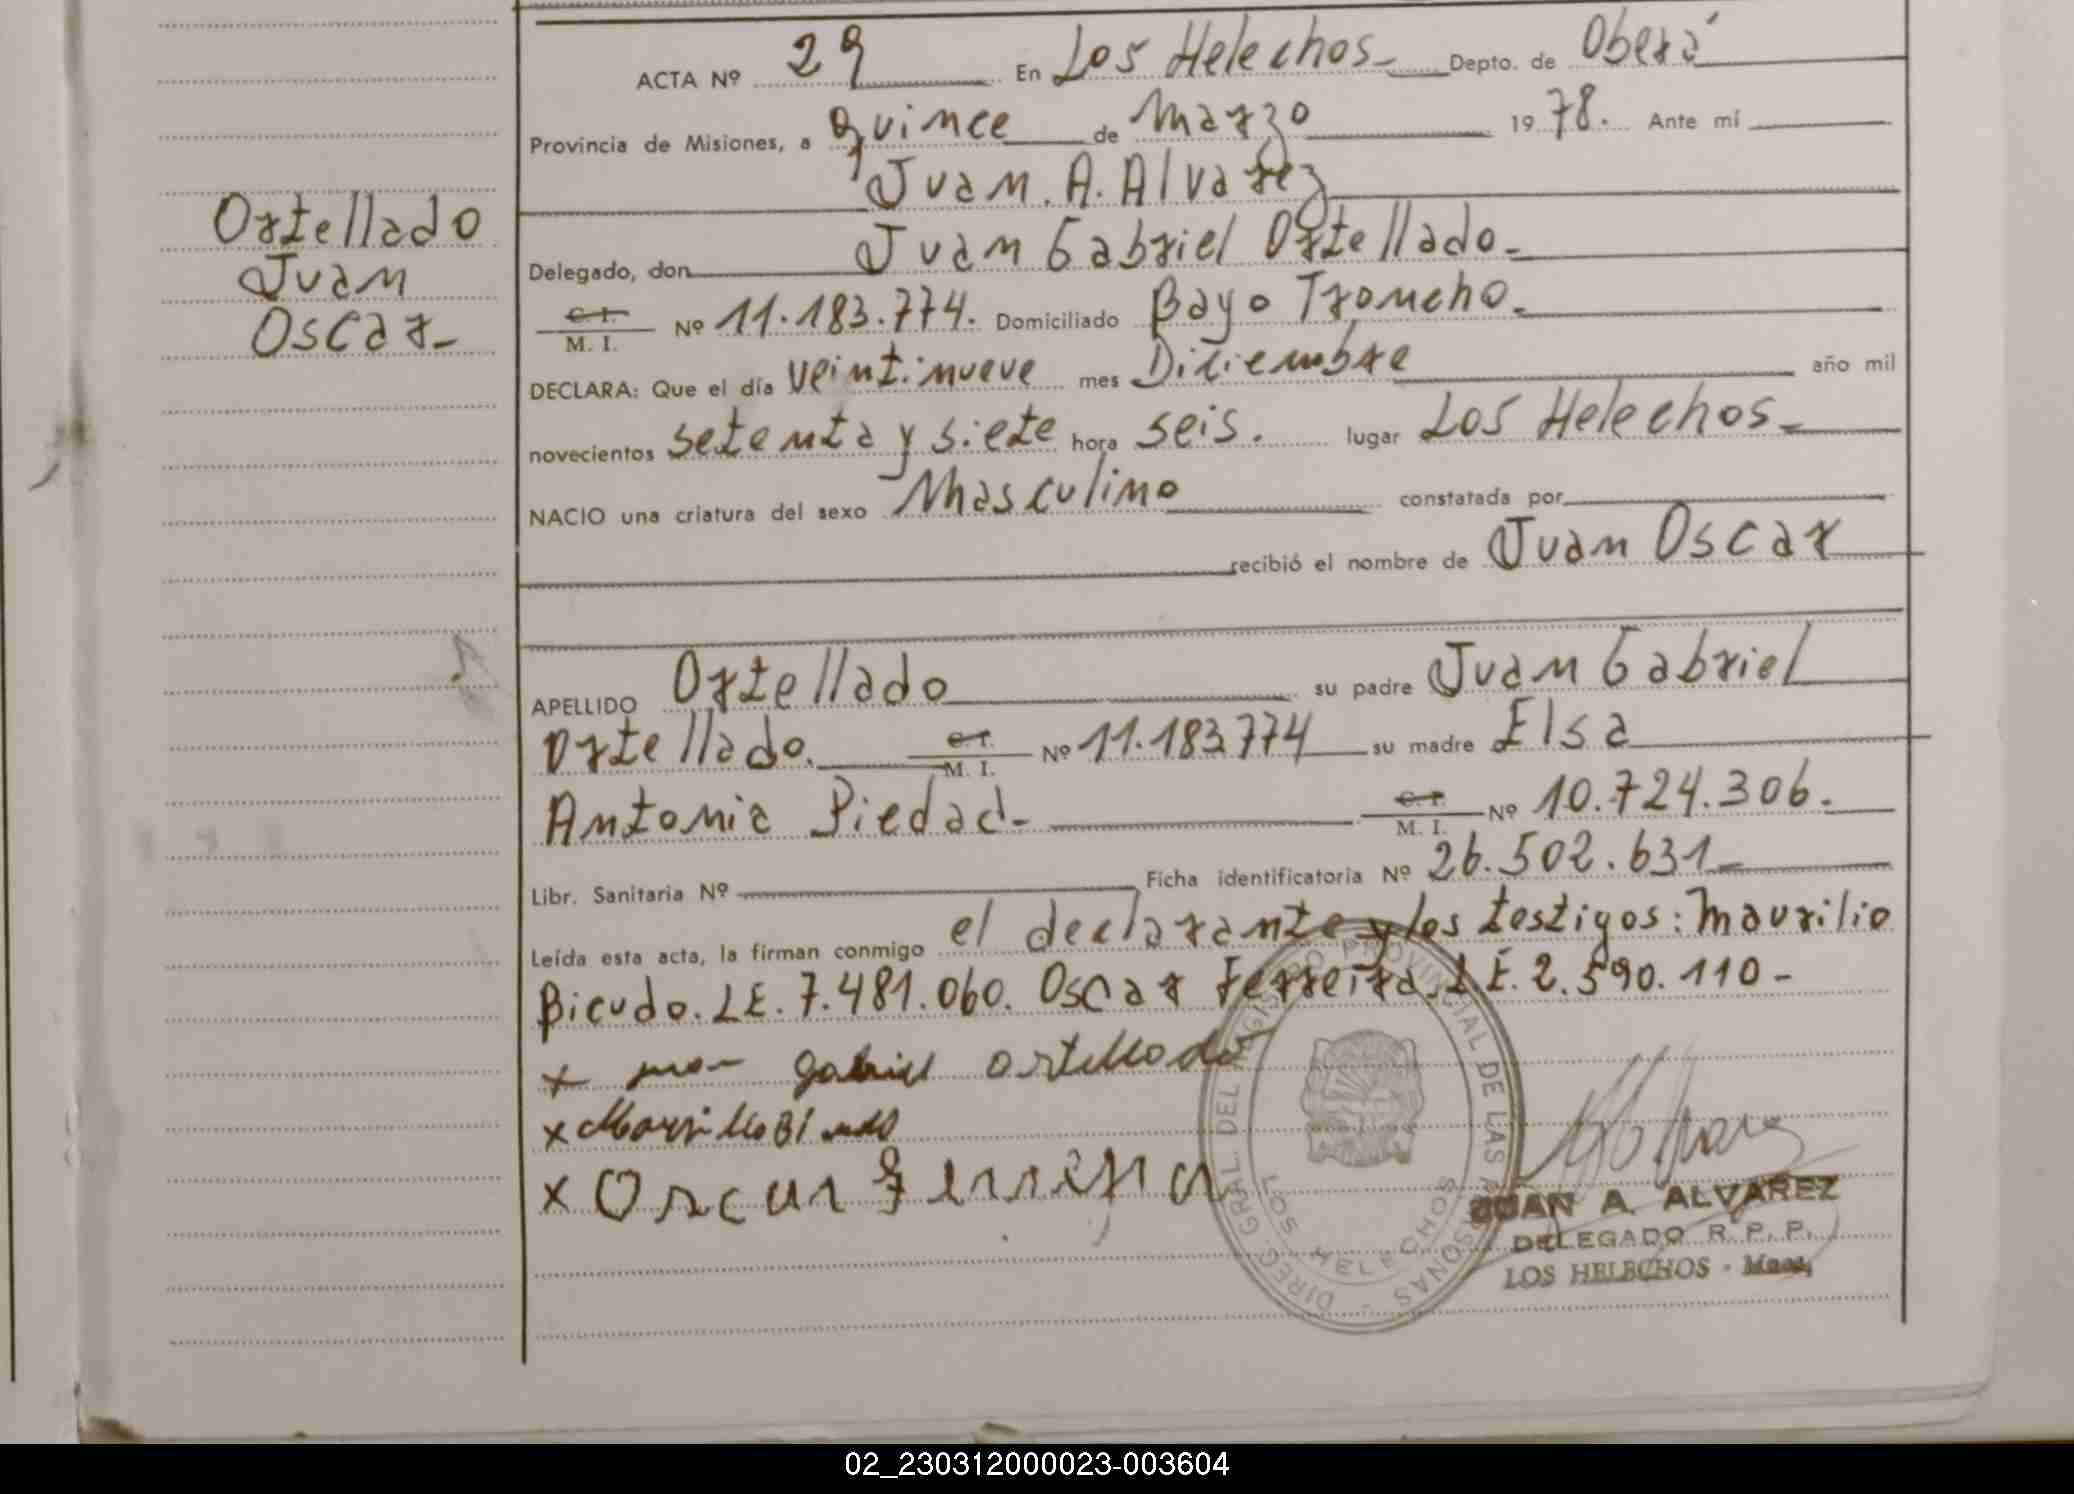 ACTA Nº 29 En Los Helechos Depto. de Oberá
Provincia de Misiones, a quince de Marzo 1978. Ante mí
Juan. A. Alvarez
Ortellado
Juan
Oscar
Delegado, don Juan Gabriel Ortellado
C. I.
M. I. Nº 11.183.774. Domiciliado Bayo Troncho
DECLARA: Que el día veintinueve mes Diciembre año mil
novecientos setenta y siete hora seis. lugar Los Helechos
NACIO una criatura del sexo Masculino constatada por
recibió el nombre de Juan Oscar
APELLIDO Ortellado su padre Juan Gabriel
Ortellado. C. I. M. I. Nº 11.183.774 su madre Elsa
Antonia Piedad C. I. M. I. Nº 10.724.306.
Libr. Sanitaria Nº Ficha identificatoria Nº 26.502.631
Leída esta acta, la firman conmigo el declarante y los testigos: Maurilio
Bicudo. LE. 7.481.060. Oscar Ferreira. L.E. 2.590.110-
x Juan gabriel ortellado
x Maurillo Bicudo
x Oscar Ferreira
DIREC. GRAL. DEL REGISTRO PROVINCIAL DE LAS PERSONAS
LOS HELECHOS
JUAN A. ALVAREZ
DELEGADO R. P. P.
LOS HELECHOS - Mnes.
02_230312000023-003604